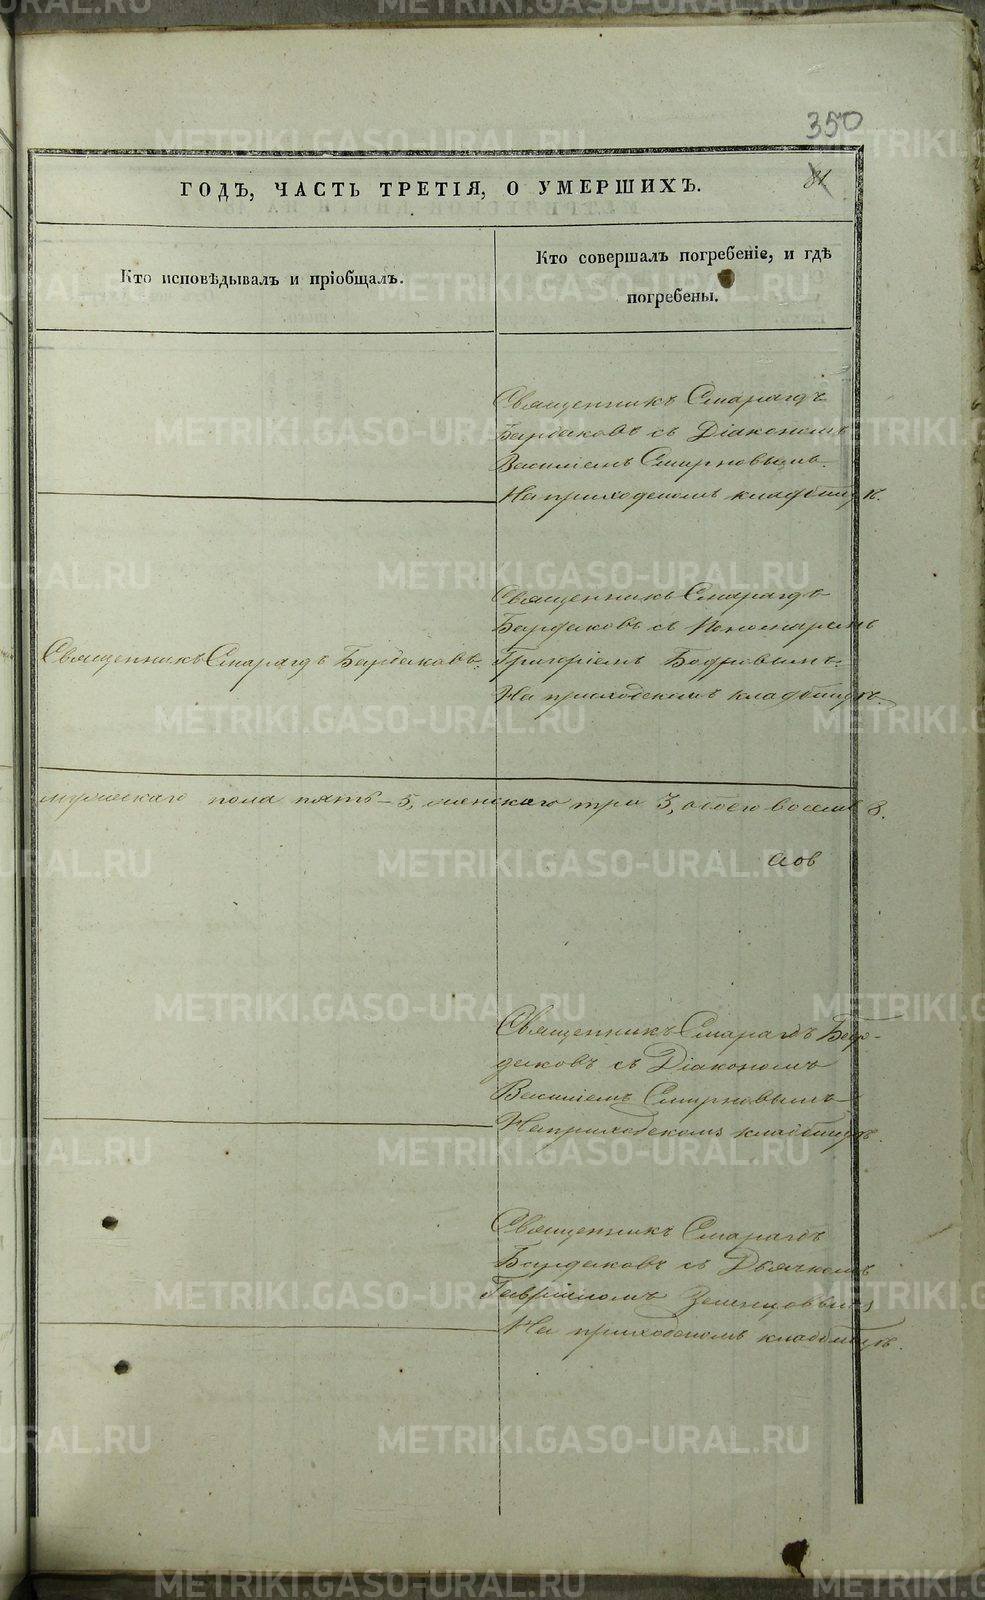 350
81
ГОДЪ, ЧАСТЬ ТРЕТІЯ, О УМЕРШИХЪ.
Кто исповѣдывалъ и пріобщалъ.
Кто совершалъ погребеніе, и гдѣ
погребены.
Священникъ Смарагдъ
Бардаковъ съ Діакономъ
Василіемъ Смирновымъ.
На приходскомъ кладбищѣ.
Священникъ Смарагдъ Бардаковъ.
Священникъ Смарагдъ
Бардаковъ съ Пономаремъ
Григоріемъ Бодровымъ.
На приходскомъ кладбищѣ.
мужескаго пола пять - 5, женскаго три 3, обоего восемь 8.
Священникъ Смарагдъ Бар-
даковъ съ Діакономъ
Василіемъ Смирновымъ
На приходскомъ кладбищѣ.
Священникъ Смарагдъ
Бардаковъ съ Дьячкомъ
Гавріиломъ
На приходскомъ кладбищѣ.
METRIKI.GASO-URAL.RU